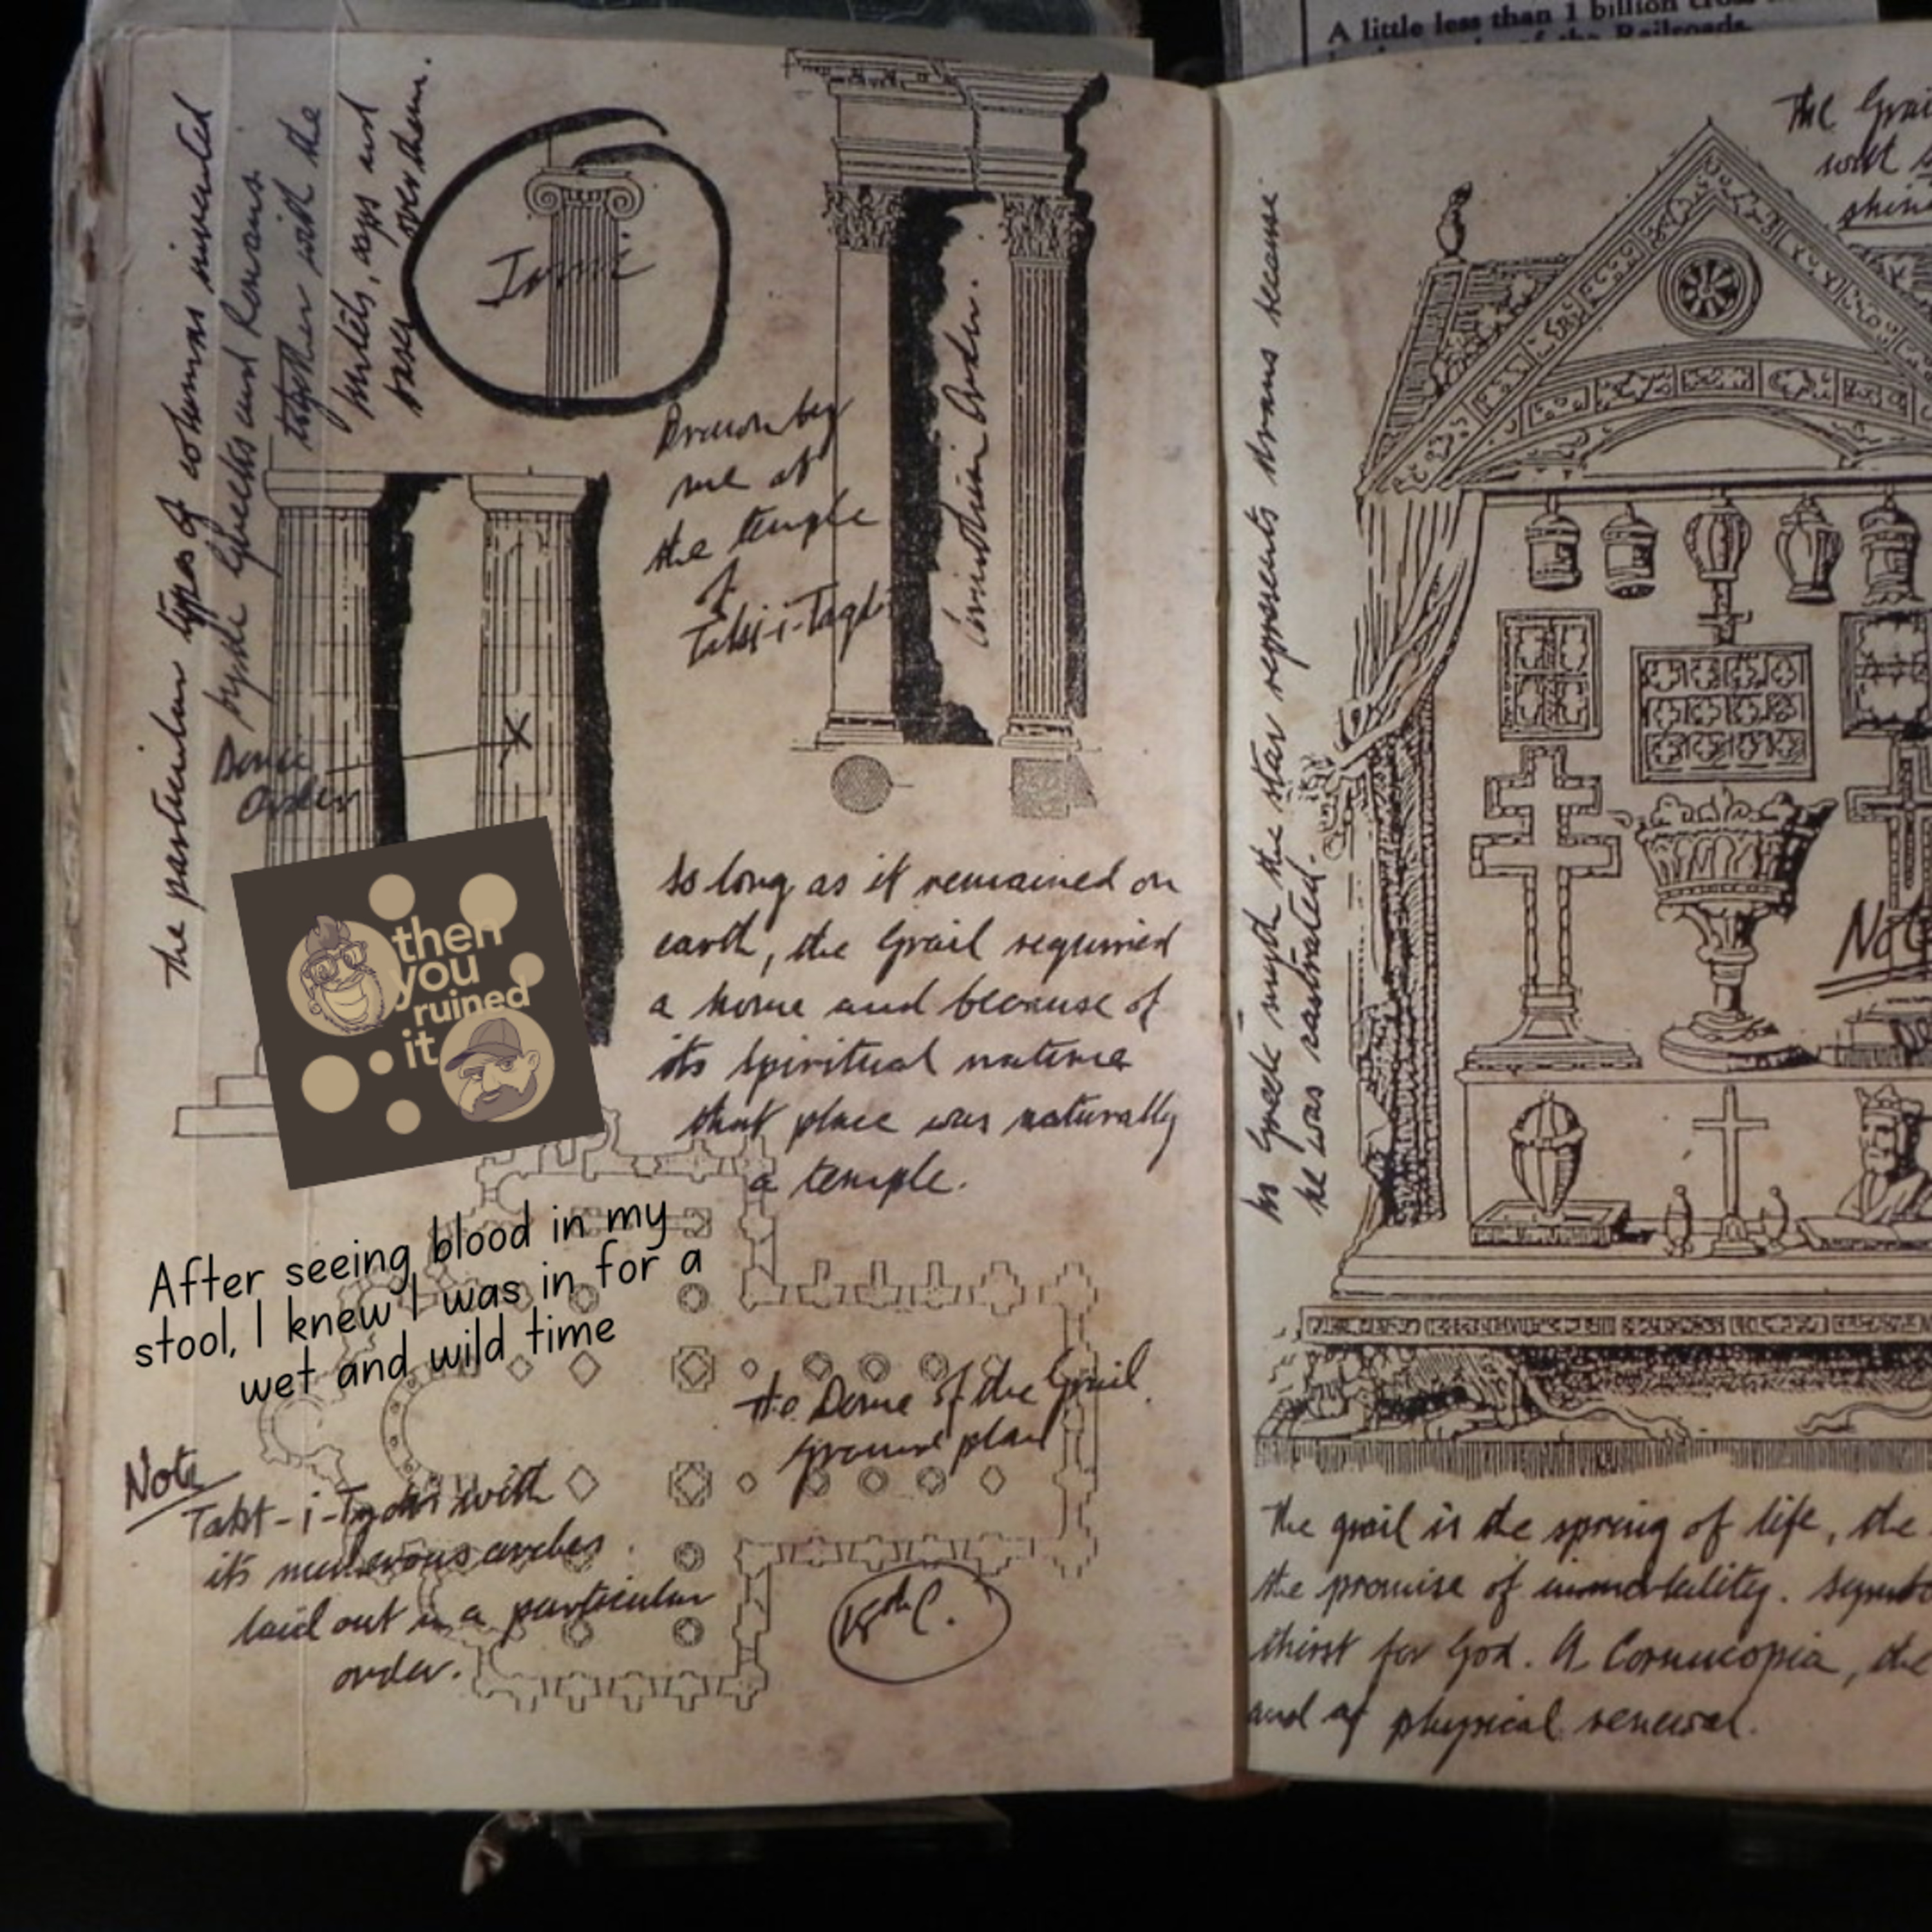 A little less than 1 billion
of the Railroads.
the particular types of columns invented
by the Greeks and Romans
together with the
lintels, caps and
bases over them.
Ionic
Drawn by
me at
the temple
of
Corinthian Order.
Doric
Order
then
you
ruined
it
so long as it remained on
earth, the Grail required
a home and because of
its spiritual nature
that place was naturally
a temple.
After seeing blood in my
stool, I knew I was in for a
wet and wild time
the Dome of the Grail
ground plan
Note
Takt-i-Taqdis with
its numerous arches
laid out in a particular
order.
The Grai
shin
In Greek myth the star represents Uranus because
he was castrated.
The grail is the spring of life, the
the promise of immortality.
thirst for God. A Cornucopia, the
and of physical renewal.